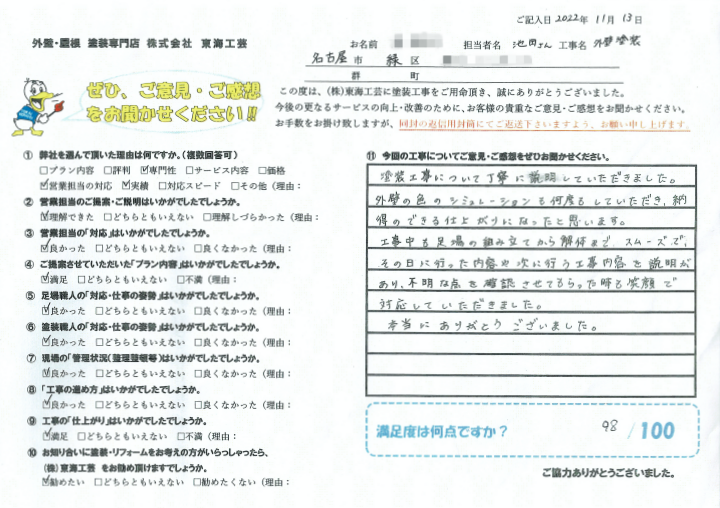 ご記入日 2022年 11月 13日
外壁・屋根 塗装専門店 株式会社 東海工芸
お名前 担当者名 池田さん 工事名 外壁塗装
名古屋 市 緑 区
群 町
ぜひ、ご意見・ご感想
をお聞かせください!!
この度は、(株)東海工芸に塗装工事をご用命頂き、誠にありがとうございました。
今後の更なるサービスの向上・改善のために、お客様の貴重なご意見・ご感想をお聞かせください。
お手数をお掛け致しますが、同封の返信用封筒にてご返送下さいますよう、お願い申し上げます。
① 弊社を選んで頂いた理由は何ですか。(複数回答可)
□プラン内容 □評判 ☑専門性 □サービス内容 □価格
☑営業担当の対応 ☑実績 □対応スピード □その他(理由:
② 営業担当のご提案・ご説明はいかがでしたでしょうか。
☑理解できた □どちらともいえない □理解しづらかった(理由:
③ 営業担当の「対応」はいかがでしたでしょうか。
☑良かった □どちらともいえない □良くなかった(理由:
④ ご提案させていただいた「プラン内容」はいかがでしたでしょうか。
☑満足 □どちらともいえない □不満(理由:
⑤ 足場職人の「対応・仕事の姿勢」はいかがでしたでしょうか。
☑良かった □どちらともいえない □良くなかった(理由:
⑥ 塗装職人の「対応・仕事の姿勢」はいかがでしたでしょうか。
☑良かった □どちらともいえない □良くなかった(理由:
⑦ 現場の「管理状況(整理整頓等)はいかがでしたでしょうか。
☑良かった □どちらともいえない □良くなかった(理由:
⑧ 「工事の進め方」はいかがでしたでしょうか。
☑良かった □どちらともいえない □良くなかった(理由:
⑨ 工事の「仕上がり」はいかがでしたでしょうか。
☑満足 □どちらともいえない □不満(理由:
⑩ お知り合いに塗装・リフォームをお考えの方がいらっしゃったら、
(株)東海工芸 をお勧め頂けますでしょうか。
☑勧めたい □どちらともいえない □勧めたくない(理由:
⑪ 今回の工事についてご意見・ご感想をぜひお聞かせください。
塗装工事について丁寧に説明していただきました。
外壁の色のシミュレーションも何度もしていただき、納
得のできる仕上がりになったと思います。
工事中も足場の組み立てから解体まで、スムーズで、
その日に行った内容や次に行う工事内容を説明が
あり、不明な点を確認させてもらった時も笑顔で
対応していただきました。
本当にありがとうございました。
満足度は何点ですか? 98 /100
ご協力ありがとうございました。